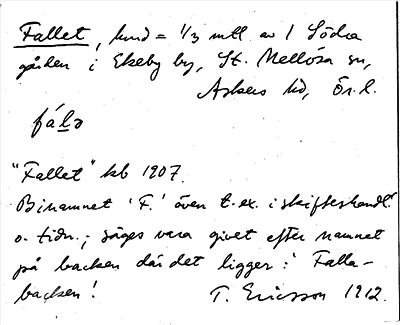 Fallet, hmd = 1/3 mtl av 1 Södra
gården i Ekeby by, St. Mellösa sn,
Askers hd, Ör. l.
fála
"Fallet" kb 1907.
Binamnet 'F.' även t. ex. i skifteshandl.
o. tidn.; säges vara givet efter namnet
på backen där det ligger: Falla-
backen!
T. Ericsson 1912.